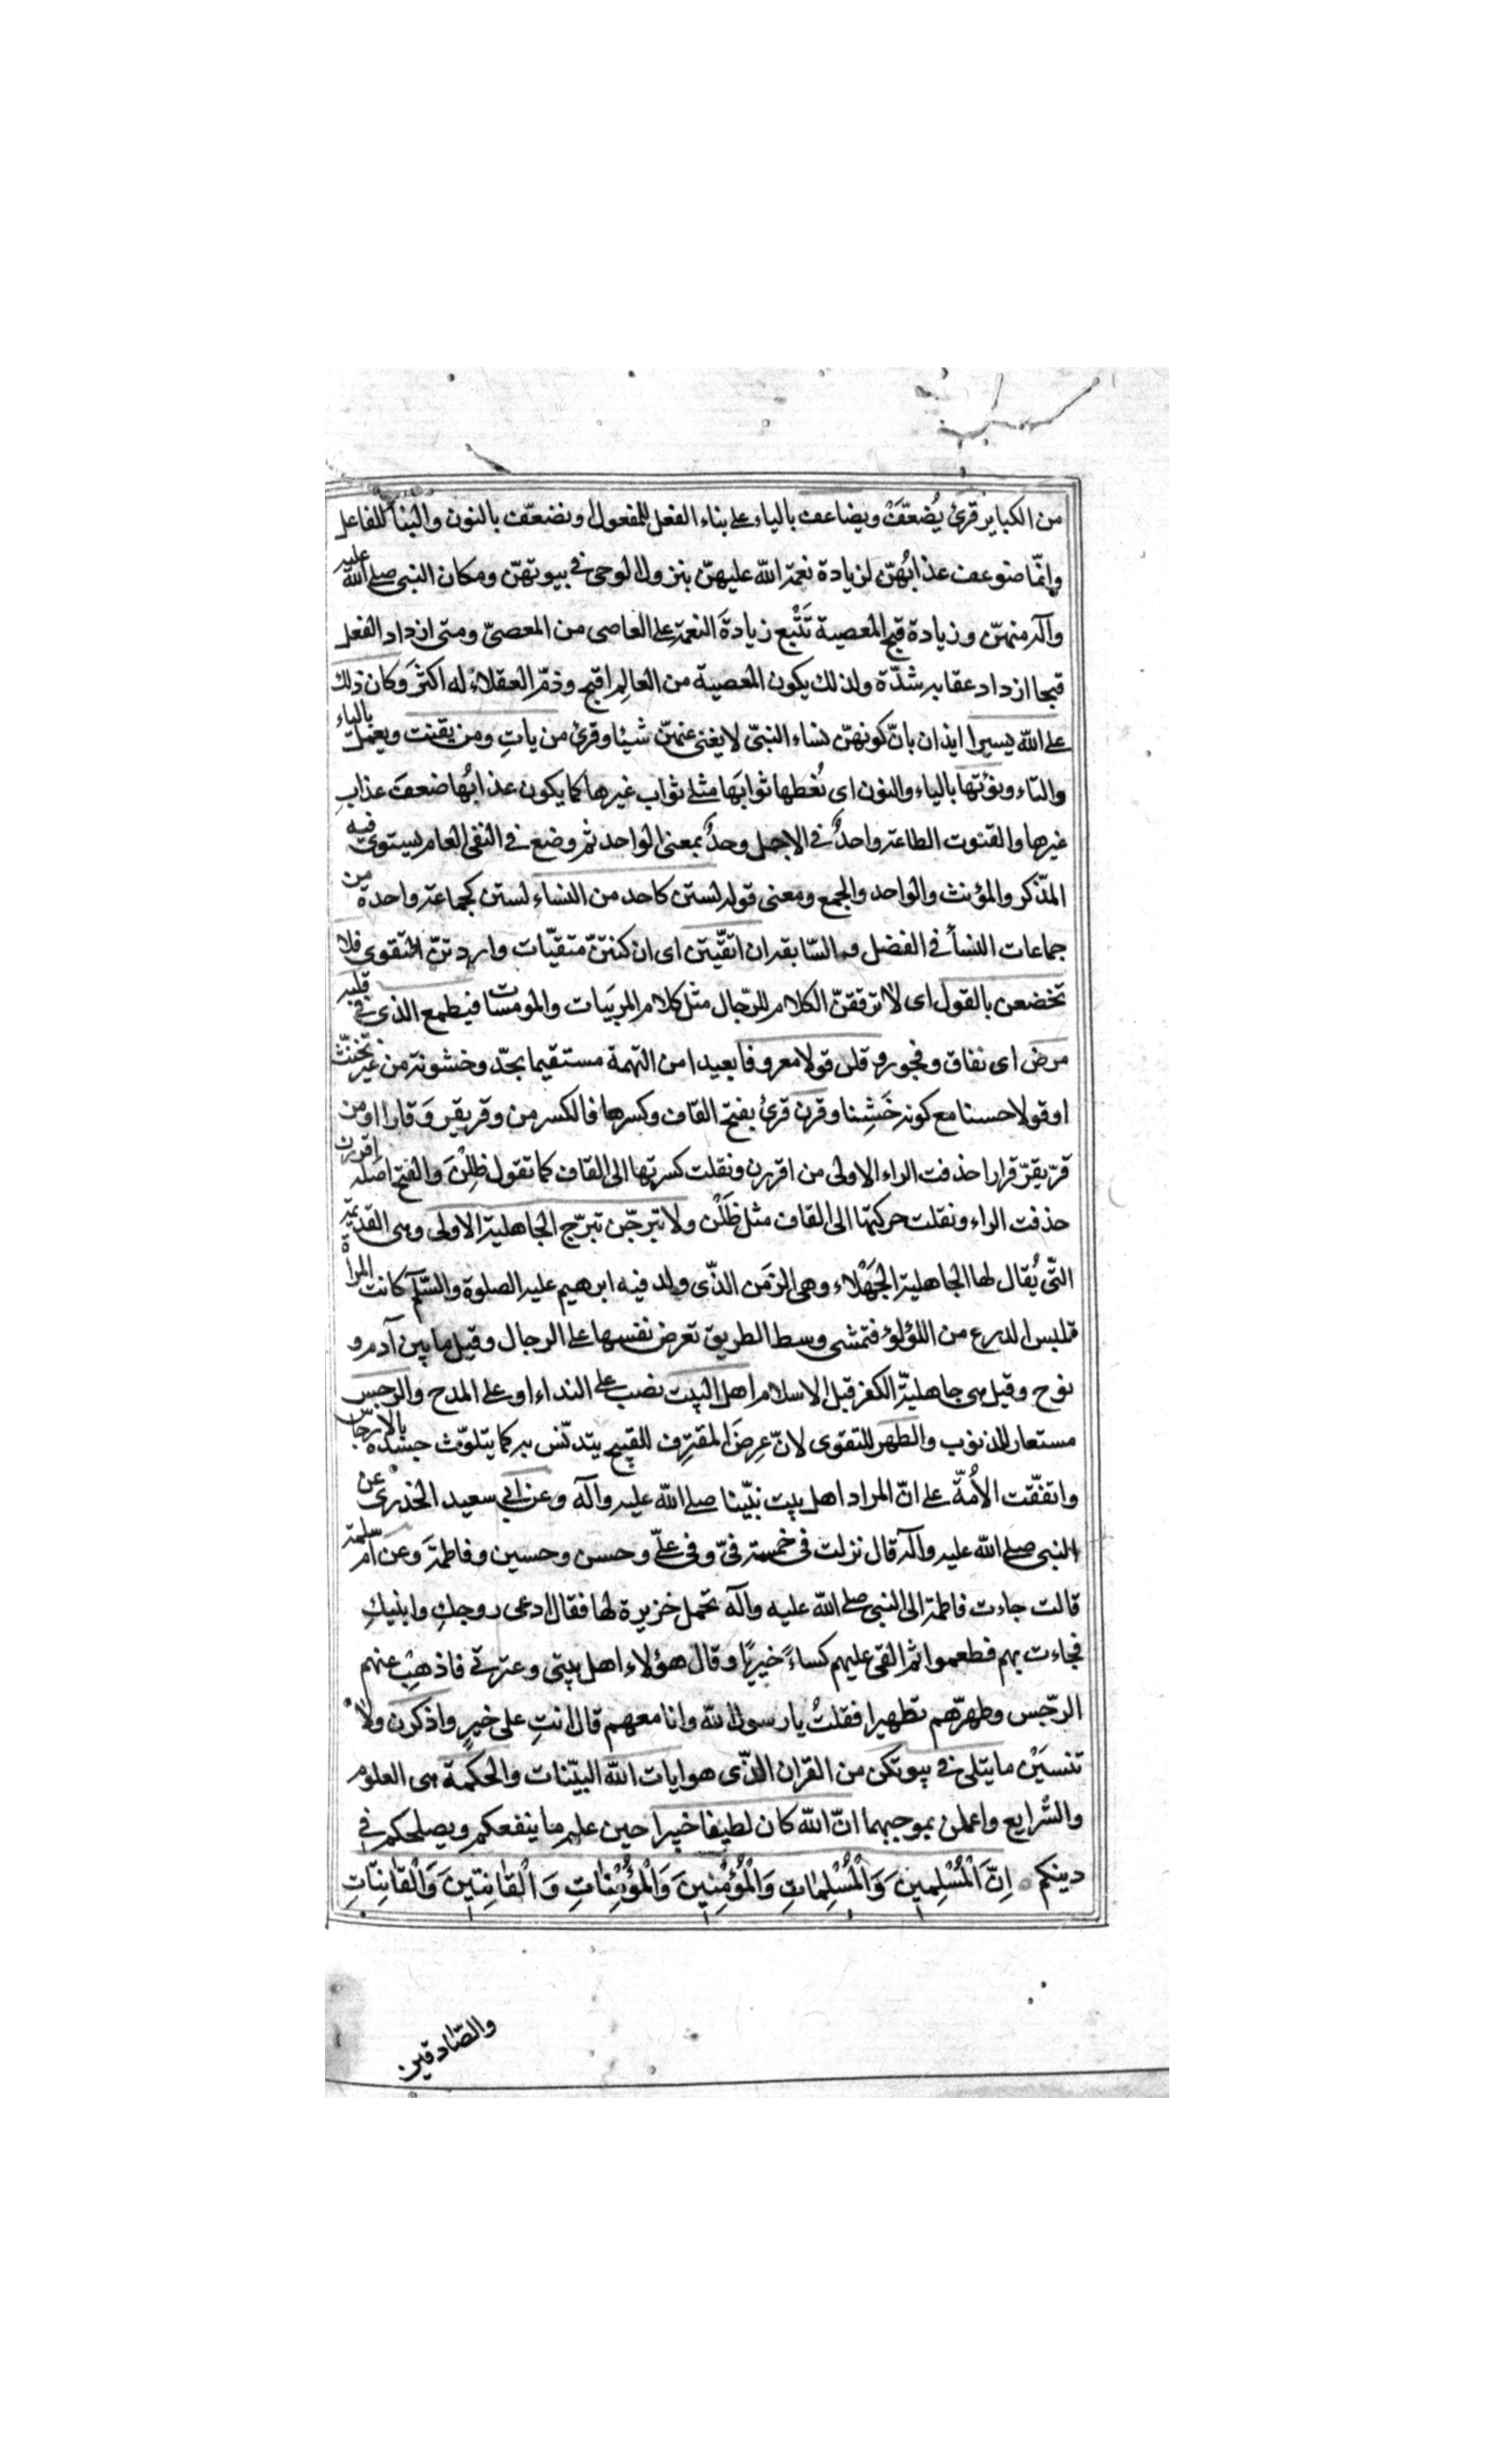 من الكباير قرئ يُضعّفَ ويضاعف بالياء على بناء الفعل للمفعول ونضعّف بالنون والبناء للفاعل
وانّما ضوعف عذابُهنّ لزيادة نعمة الله عليهنّ بنزول الوحى فى بيوتهنّ ومكان النبى صلى الله عليه
وآله منهنّ وزيادة قبح المعصية تَتْبع زيادةَ النعمة على العاصى من المعصىّ ومتى ازداد الفعل
قبحا ازداد عقابه شدّة ولذلك يكون المعصية من العالِم اقبح وذمّ العقلاء له اكثَر وكان ذلك
على الله يسيرا ايذان بانّ كونهنّ نساء النبىّ لا يغنى عنهنّ شيئا وقرئ من ياتِ ومن يقنت ويعمل بالياء
والتاء ونؤتها بالياء والنون اى نُعطها ثوابَها مثلى ثواب غيرها كما يكون عذابُها ضعفَ عذابِ
غيرها والقنوت الطاعة واحدٌ فى الاصل وحدٌ بمعنى الواحد ثم وضع فى النفى العام ليستوى فيه
المذّكر والمؤنث والواحد والجمع ومعنى قوله لستن كاحد من النساء لستن كجماعة واحدة من
جماعات النسأ فى الفضل والسّابقة ان اتقيّتن اى ان كنتنّ متقيّات واردتنّ التقوى فلا
تخضعن بالقول اى لا ترققنّ الكلام للرّجال مثل كلام المريَبات والمومسات فيطمع الذى فى قلبه
مرض اى نفاق وفجور وقلن قولا معروفا بعيدا من التهمة مستقيما بجدّ وخشونة من غير تخنّث
او قولا حسنا مع كونه خَشِنا وقرن قرئ بفتح القاف وكسرها فالكسر من وقر يقر وَقارا او من
قرّ يقرّ قرارا حذفت الراء الاولى من اقررن ونقلت كسرتها الى القاف كما تقول ظِلْنَ والفتح اصله اقررن
حذفت الراء ونقلت حركتها الى القاف مثل ظَلْن ولا تبرجّن تبرّج الجاهلية الاولى وهى القديمة
التّى يُقال لها الجاهلية الجَهْلاء وهى الزمَن الذّى ولد فيه ابرهيم عليه الصلوة والسّلم كانت المرأة
تلبس الدرع من اللؤلؤ فتمشى وسط الطريق تعرض نفسها على الرجال وقيل ما بين آدم و
نوح وقيل هى جاهليّة الكفر قبل الاسلام اهل البيت نصب على النداء او على المدح والرجس
مستعار للذنوب والطهر للتقوى لانّ عِرضَ المقترف للقبيح يتدنّس به كما يتلوّث جسده بالارجاس
واتفّقت الاُمّة على انّ المراد اهل بيت نبيّنا صلى الله عليه وآله وعن ابى سعيد الخدرى عن
النبى صلى الله عليه وآله قال نزلت فى خمسة فىّ وفى علىّ وحسن وحسين وفاطمة وعن ام سلمة
قالت جاءت فاطمة الى النبى صلى الله عليه وآله تحمل خزيرة لها فقال ادعى زوجكِ وابنيكِ
فجاءت بهم فطعموا ثم القى عليهم كساءً خيبريّا وقال هؤلاء اهل بيتى وعترتى فاذهب عنهم
الرّجس وطهرّهم تطهيرا فقلتُ يا رسول الله وانا معهم قال انتِ على خيرٍ واذكرن ولا
تنسَيْن ما يتلى فى بيوتكن من القران الذّى هو ايات الله البيّنات والحكمة هى العلوم
والشرايع واعملن بموجبهما انّ الله كان لطيفا خبيرا حين علم ما ينفعكم ويصلحكم فى
دينكم اِنَّ اَلْمُسْلِمينَ وَالْمُسْلِماتِ وَالْمُؤْمِنينَ وَالْمُؤْمِناتِ وَالْقانِتينَ وَالْقانِتاتِ
والصّادقين